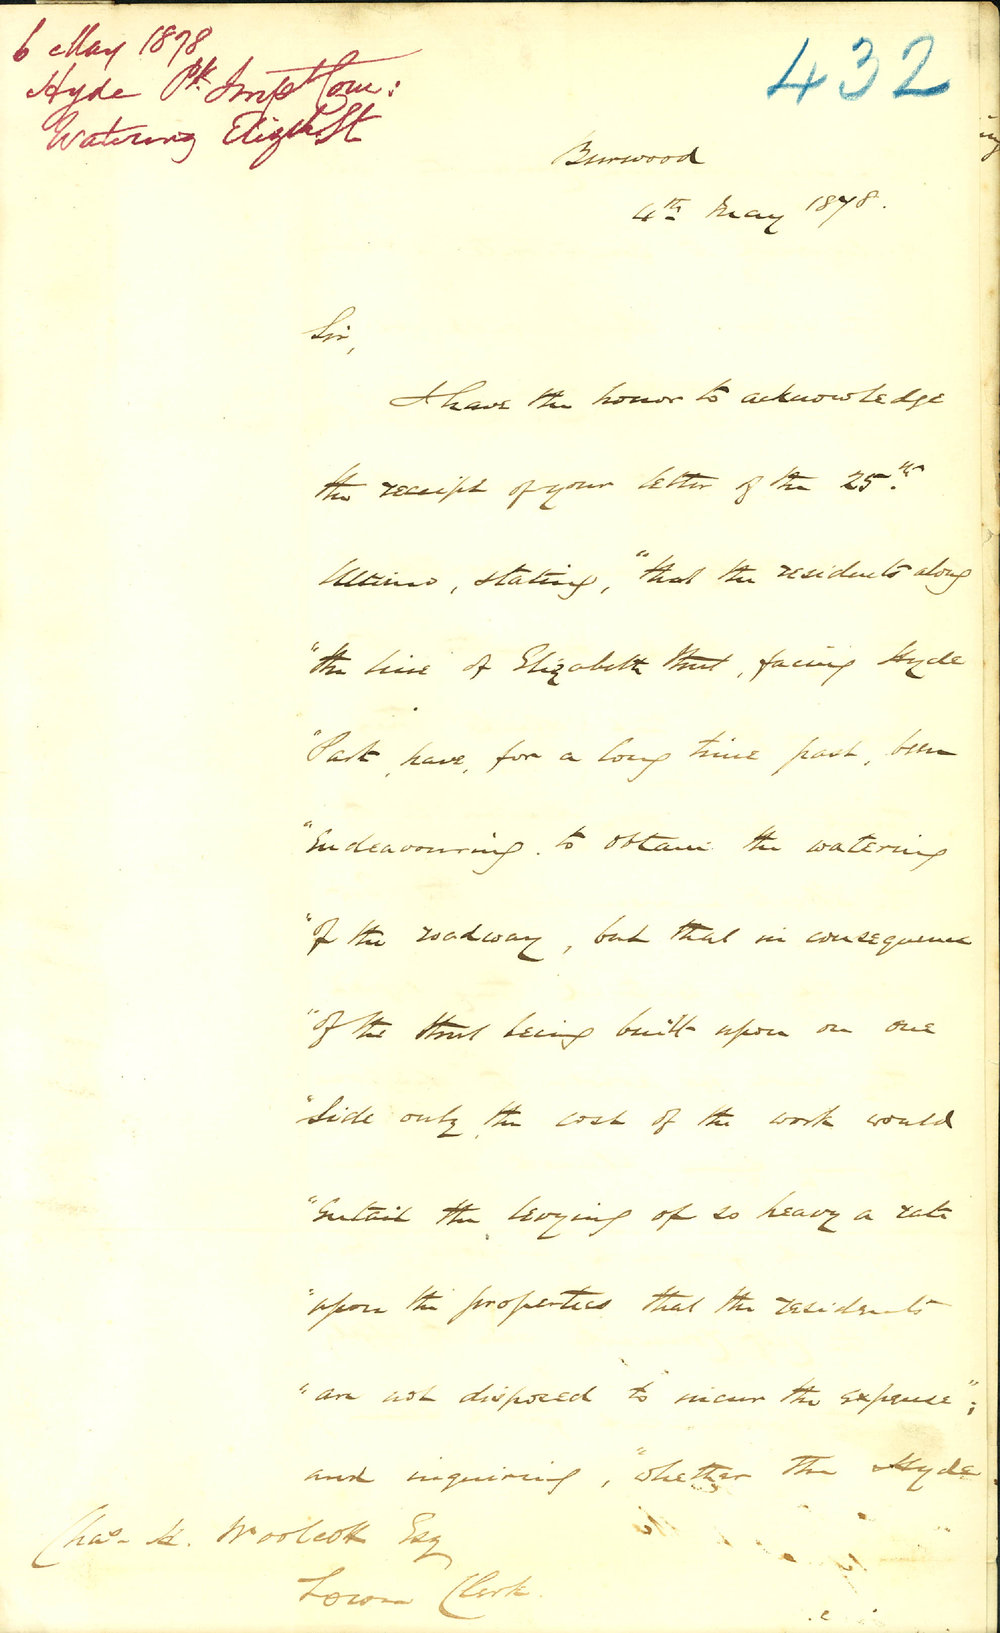 6 May 1878
Hyde Pk Impt Com:
Watering Elizth St
432
Burwood
4th May 1878.
Sir,
I have the honor to acknowledge
the receipt of your letter of the 25th.
Ultimo, stating, "that the residents along
"the line of Elizabeth Street, facing Hyde
"Park, have, for a long time past, been
"Endeavouring to obtain the watering
"of the roadway, but that in consequence
"of the Street being built upon on one
"Side only, the cost of the work would
"Entail the levying of so heavy a rate
"upon the properties that the residents
"are not disposed to incur the expense";
and inquiring, "whether the Hyde
Chas. H. Woolcott Esq
Town Clerk.